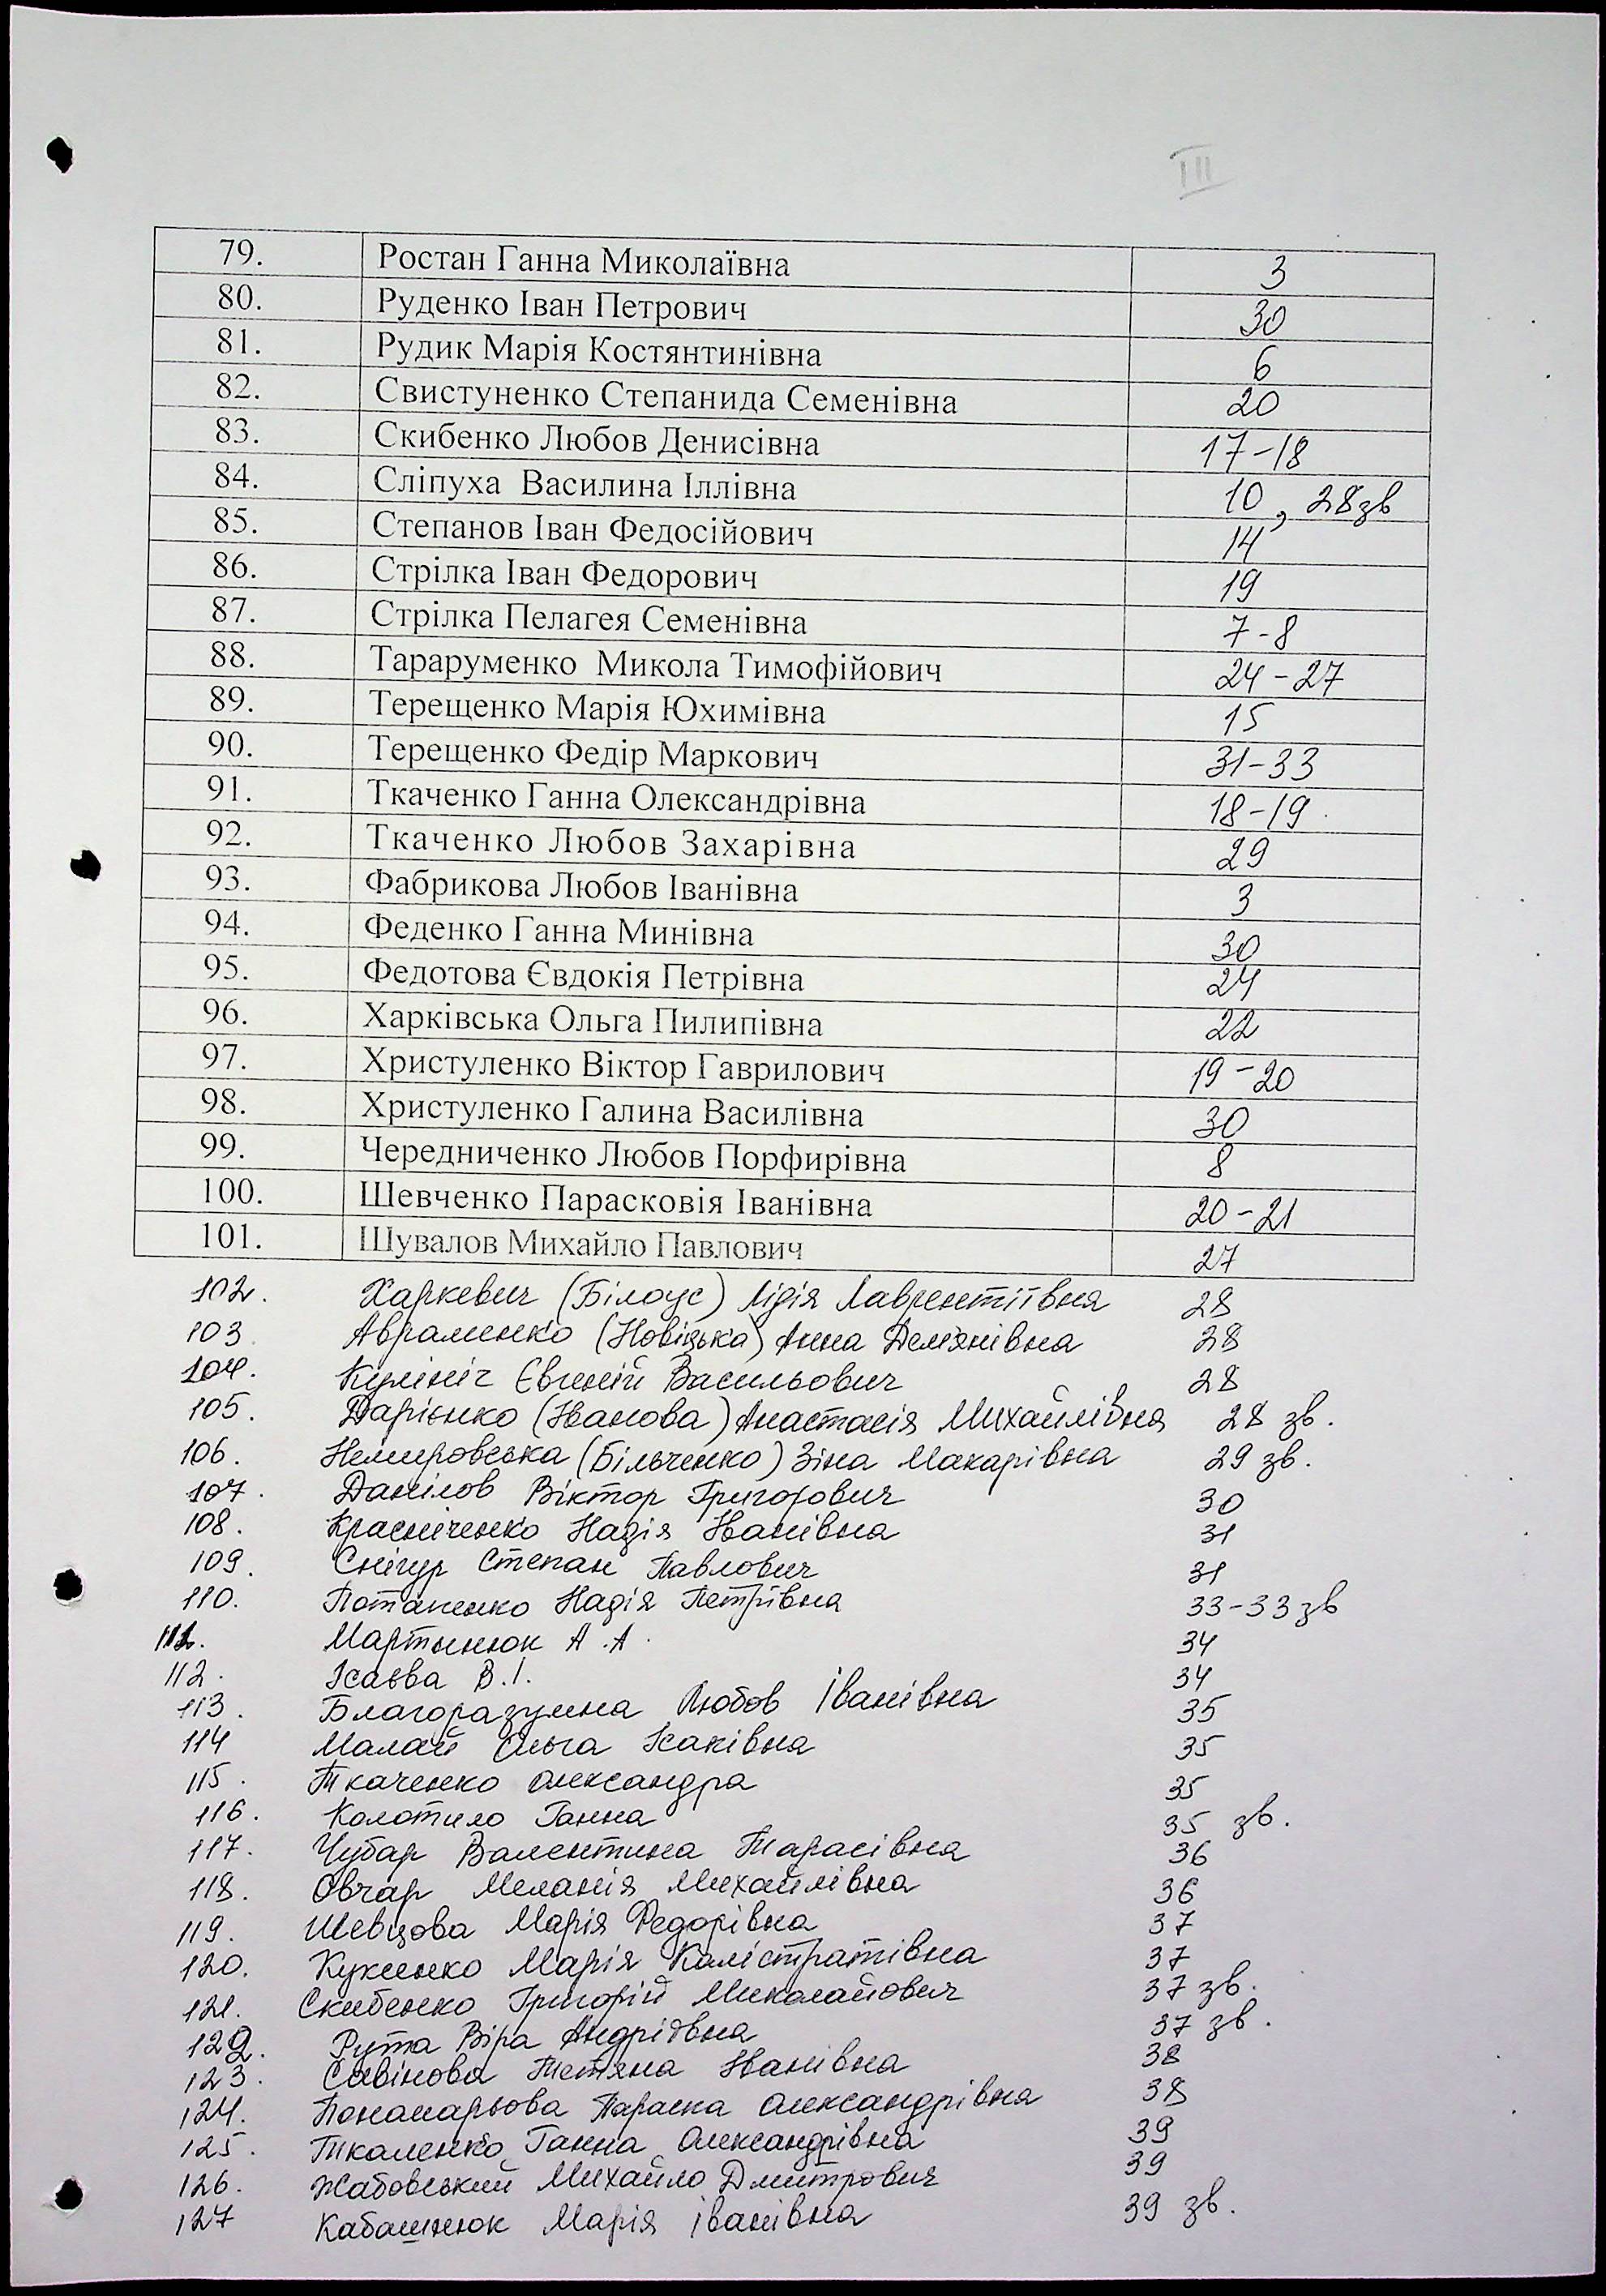 III
79. Ростан Ганна Миколаївна 3
80. Руденко Іван Петрович 30
81. Рудик Марія Костянтинівна 6
82. Свистуненко Степанида Семенівна 20
83. Скибенко Любов Денисівна 17-18
84. Сліпуха Василина Іллівна 10, 28зв
85. Степанов Іван Федосійович 14
86. Стрілка Іван Федорович 19
87. Стрілка Пелагея Семенівна 7-8
88. Тараруменко Микола Тимофійович 24-27
89. Терещенко Марія Юхимівна 15
90. Терещенко Федір Маркович 31-33
91. Ткаченко Ганна Олександрівна 18-19
92. Ткаченко Любов Захарівна 29
93. Фабрикова Любов Іванівна 3
94. Феденко Ганна Минівна 30
95. Федотова Євдокія Петрівна 24
96. Харківська Ольга Пилипівна 22
97. Христуленко Віктор Гаврилович 19-20
98. Христуленко Галина Василівна 30
99. Чередниченко Любов Порфирівна 8
100. Шевченко Парасковія Іванівна 20-21
101. Шувалов Михайло Павлович 27
102. Харкевич (Білоус) Лідія Лаврентіївна 28
103. Авраменко (Новіцька) Анна Дем'янівна 28
104. Кулініч Євгеній Васильович 28
105. Дарієнко (Іванова) Анастасія Михайлівна 28 зв.
106. Немировська (Більченко) Зіна Макарівна 29 зв.
107. Данілов Віктор Григорович 30
108. Красніченко Надія Іванівна 31
109. Снігур Степан Павлович 31
110. Потапенко Надія Петрівна 33-33зв
111. Мартинюк А.А. 34
112. Ісаєва В.І. 34
113. Благоразумна Любов Іванівна 35
114 Малай Ольга Ісаківна 35
115. Ткаченко Олександра 35
116. Колотило Ганна 35 зв.
117. Чубар Валентина Тарасівна 36
118. Овчар Меланія Михайлівна 36
119. Шевцова Марія Федорівна 37
120. Кукленко Марія Калістратівна 37
121. Скибенко Григорій Миколайович 37 зв.
122. Рута Віра Андріївна 37 зв.
123. Савінова Тетяна Іванівна 38
124. Пономарьова Параска Олександрівна 38
125. Ткаленко Ганна Олександрівна 39
126. Жабовський Михайло Дмитрович 39
127 Кабашнюк Марія Іванівна 39 зв.